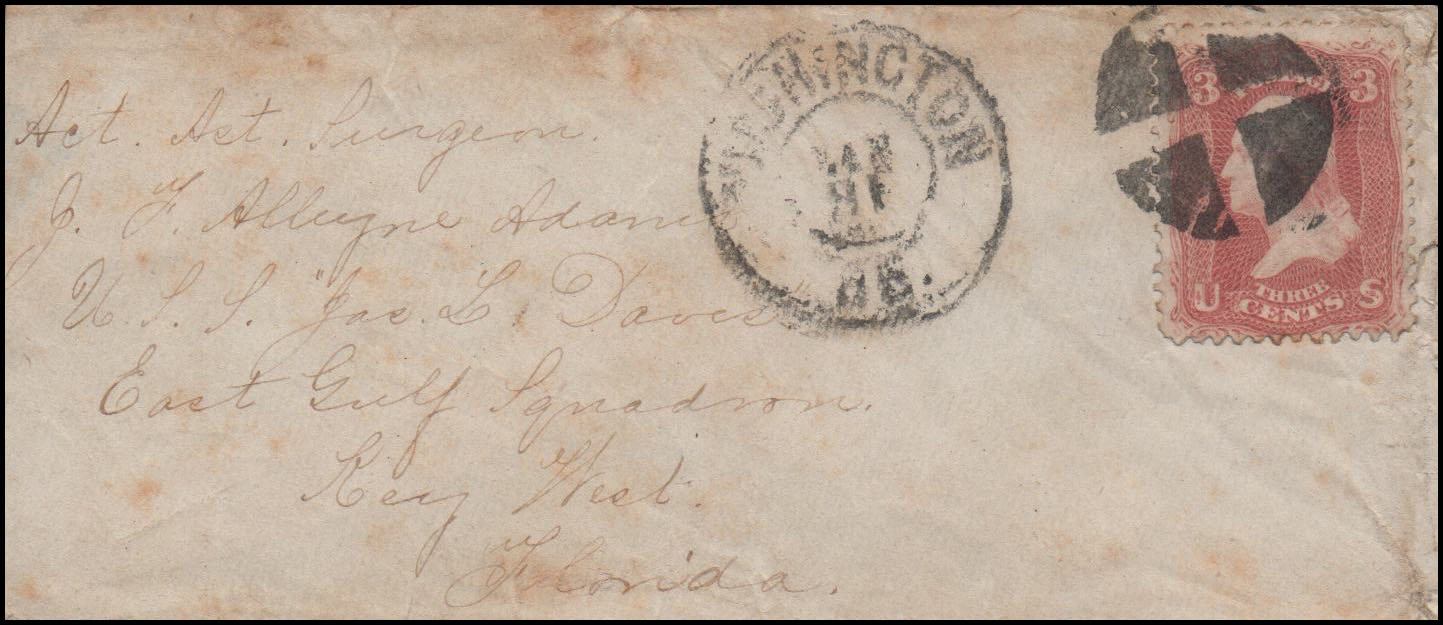 Act. Ast. Surgeon.
J. F. Alleyne Adams
U. S. S. "Jas. L. Daves"
East Gulf Squadron.
Key West.
Florida.
WASHINGTON
3 3
U THREE CENTS S